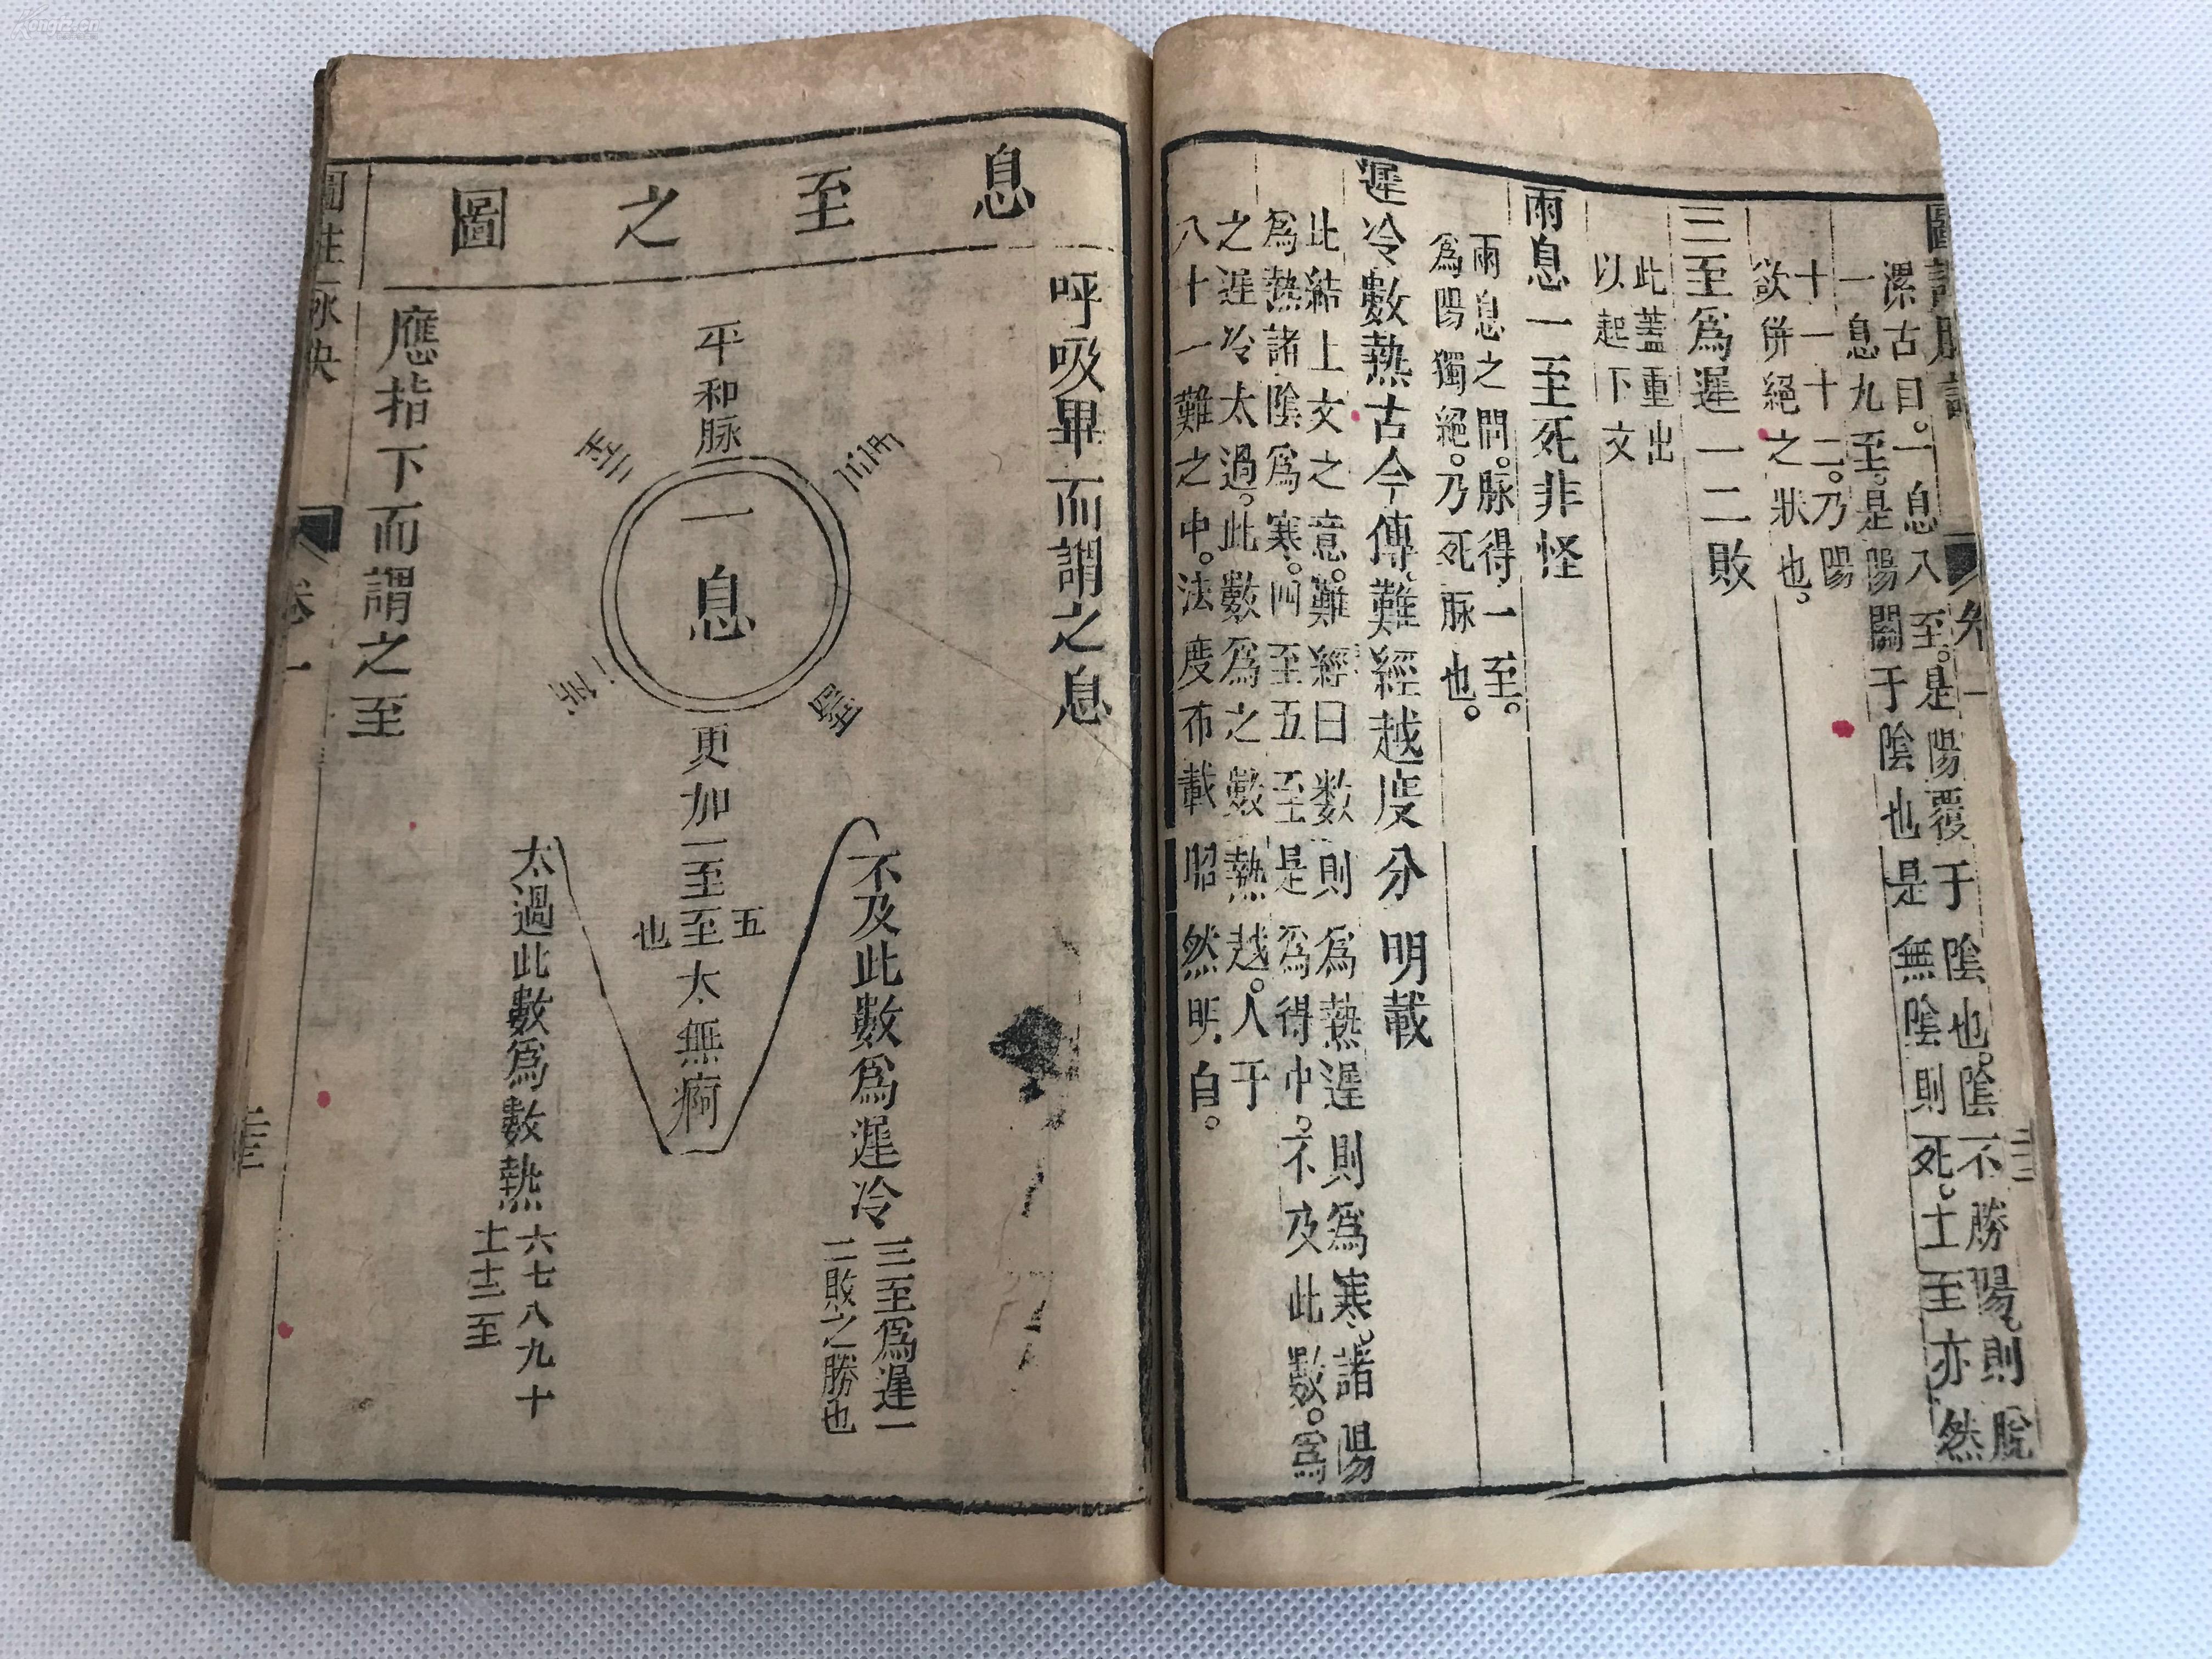 潔古曰。一息八至。是陽覆于陰也。陰不勝陽。則脫
一息九至。是陽關于陰也是無陰則死。土至亦然
十一十二。乃陽
欲併絕之狀也。
三至爲遲一二敗
此蓋重出
以起下文
兩息一至死非怪
兩息之間。脉得一至。
爲陽獨絕。乃死脉也。
遲冷數熱古今傳難經越度分明載
此結上文之意。難經曰数則爲熱遲則爲寒。諸陽
爲熱諸陰爲寒。四至五至是爲得中。不及此數。爲
之遲冷太過。此數爲之數熱越。人于
八十一難之中。法度布載昭然明白。
卷一
息至之圖
呼吸畢而謂之息
平和脉
一息
更加一至
五至也
太無痾
不及此數爲遲冷
三至爲遲一
二敗之勝也
太過此數爲數熱
六七八九十
土士至
應指下而謂之至
卷一